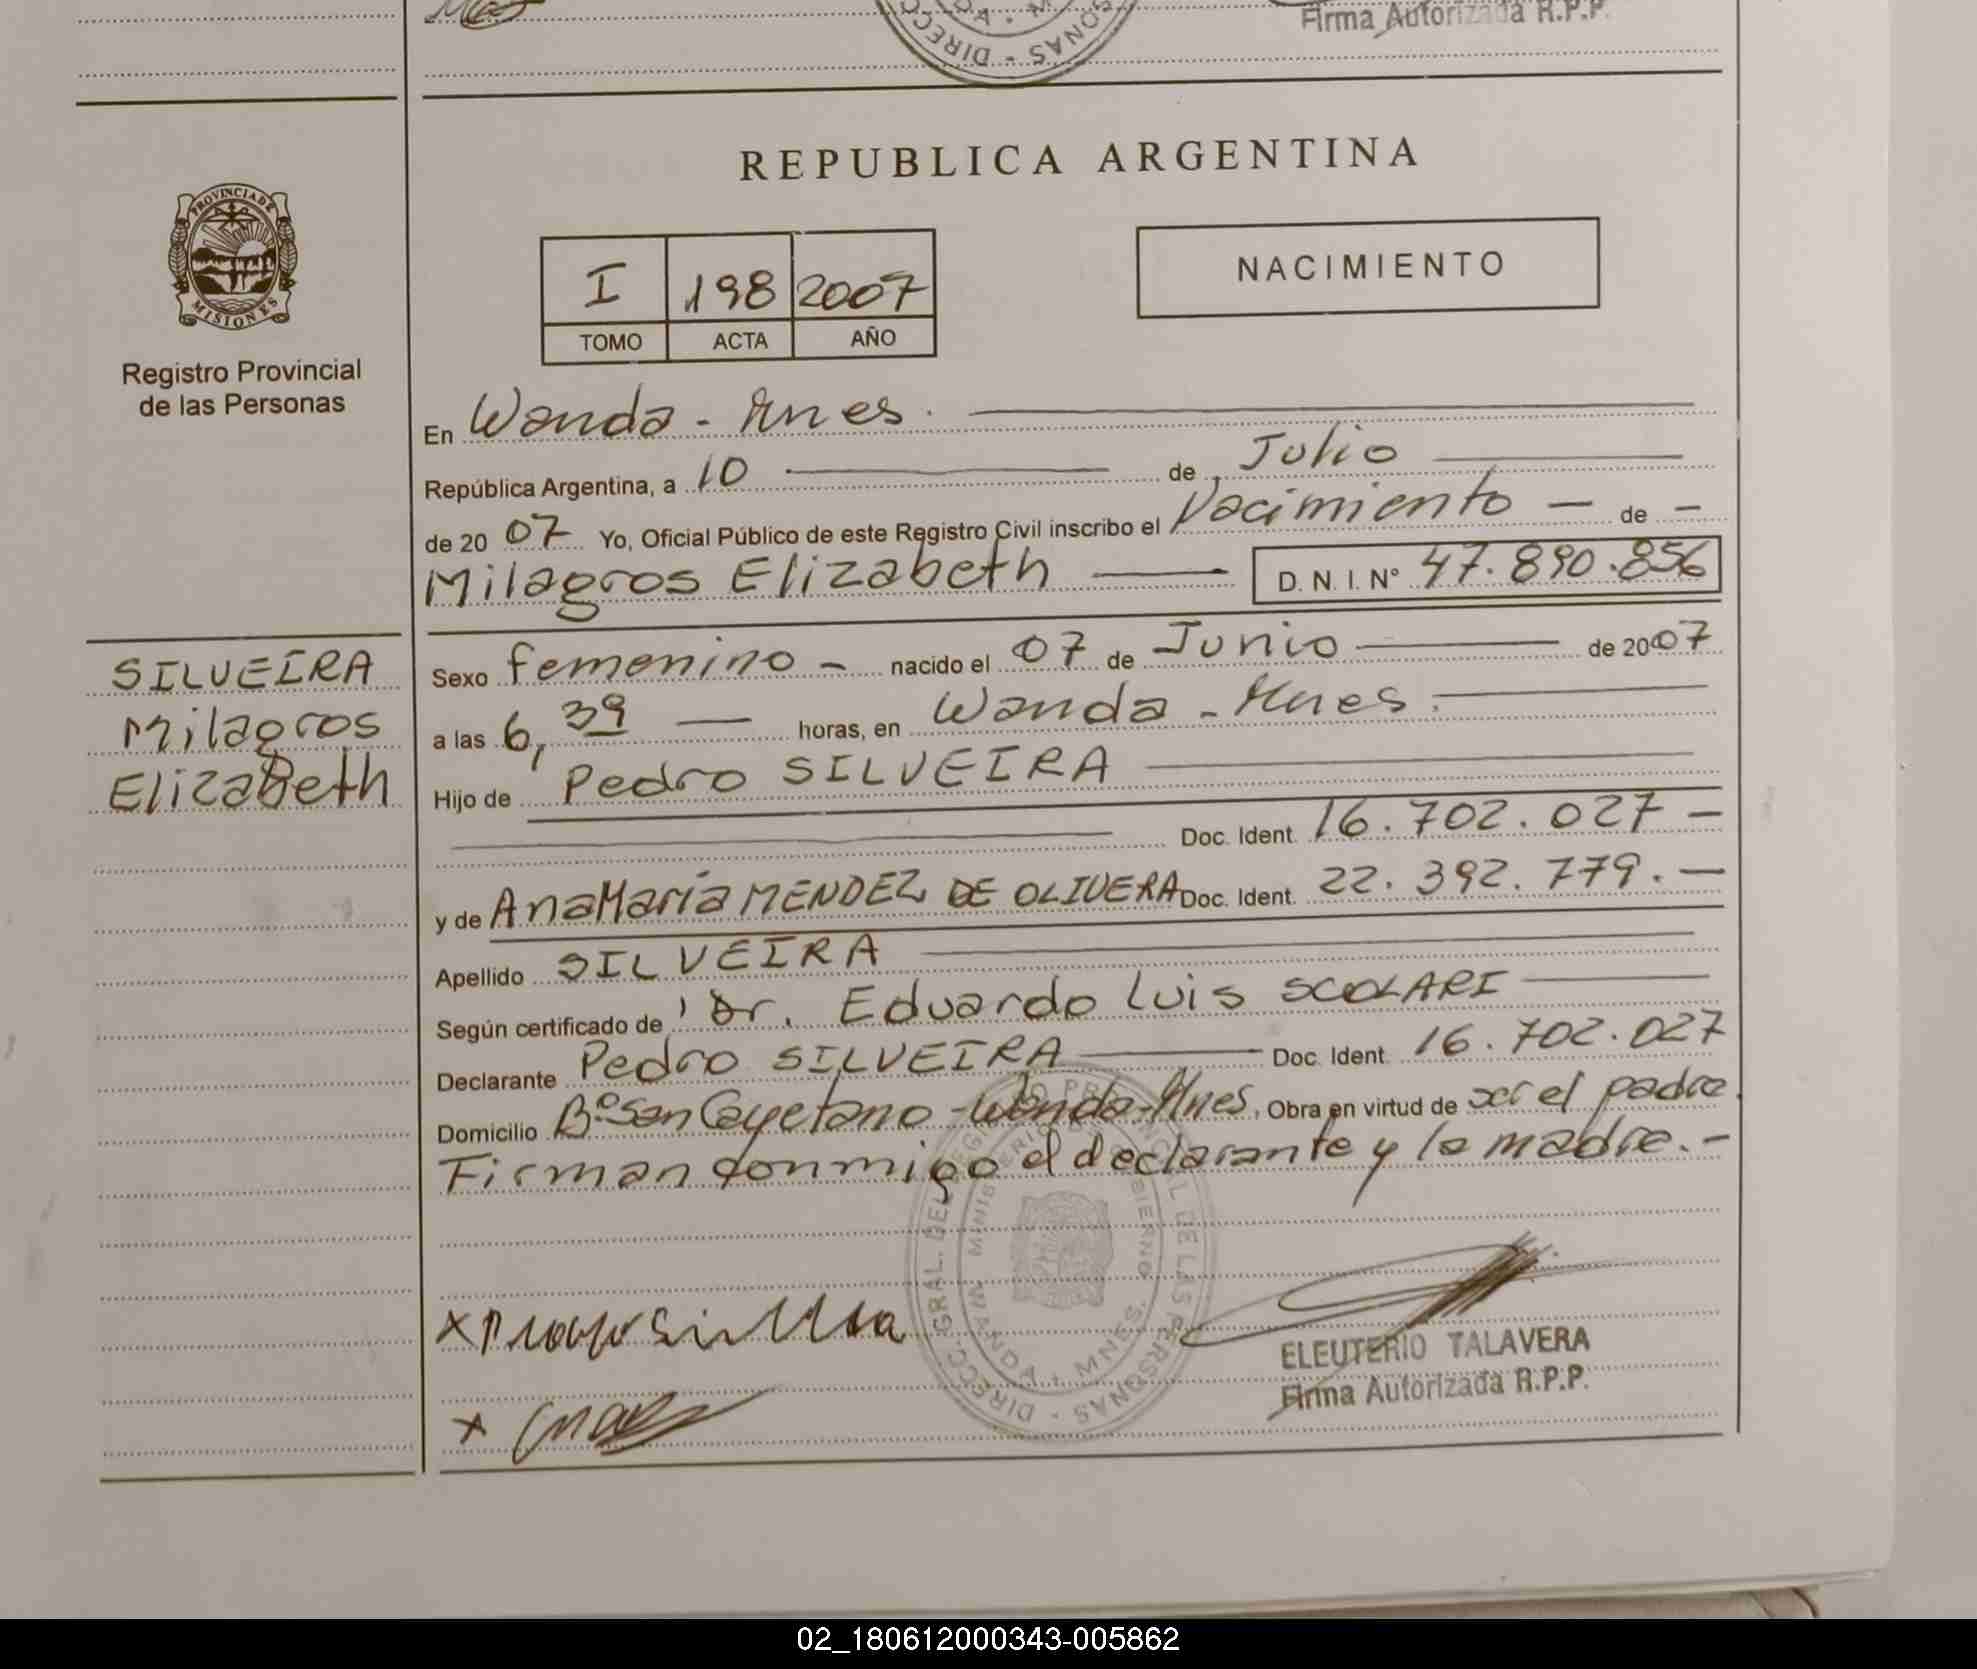 Firma Autorizada R.P.P.
DIRECC
SONAS
REPUBLICA ARGENTINA
PROVINCIA DE
MISIONES
Registro Provincial
de las Personas
I 198 2007
TOMO ACTA AÑO
NACIMIENTO
En Wanda - Mnes.
República Argentina, a 10 de Julio
de 2007 Yo, Oficial Público de este Registro Civil inscribo el Nacimiento de
Milagros Elizabeth D. N. I. N° 47.890.856
SILVEIRA
Milagros
Elizabeth
Sexo femenino - nacido el 07 de Junio de 2007
a las 6,39 horas, en Wanda - Mnes.
Hijo de Pedro SILVEIRA
Doc. Ident. 16.702.027 -
y de Ana María MENDEZ DE OLIVERA Doc. Ident. 22.392.779. -
Apellido SILVEIRA
Según certificado de Dr. Eduardo Luis SCOLARI
Declarante Pedro SILVEIRA Doc. Ident. 16.702.027
Domicilio B° San Cayetano - Wanda - Mnes, Obra en virtud de ser el padre.
Firman conmigo el declarante y la madre. -
DIRECC. GRAL. DEL REGISTRO PROVINCIAL DE LAS PERSONAS
MINISTERIO DE GOBIERNO
WANDA - MNES.
ELEUTERIO TALAVERA
Firma Autorizada R.P.P.
02_180612000343-005862